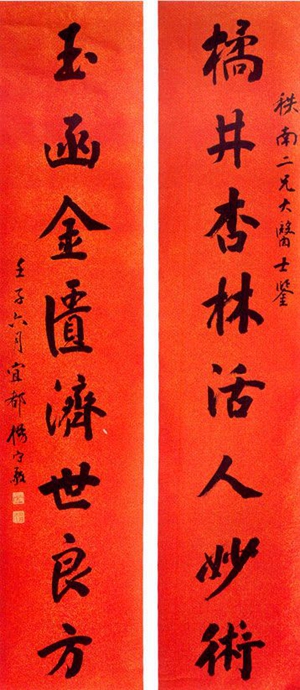 秩南二兄大醫士鑒
橘井杏林活人妙術
玉函金匱濟世良方
壬子六月宜都楊守敬